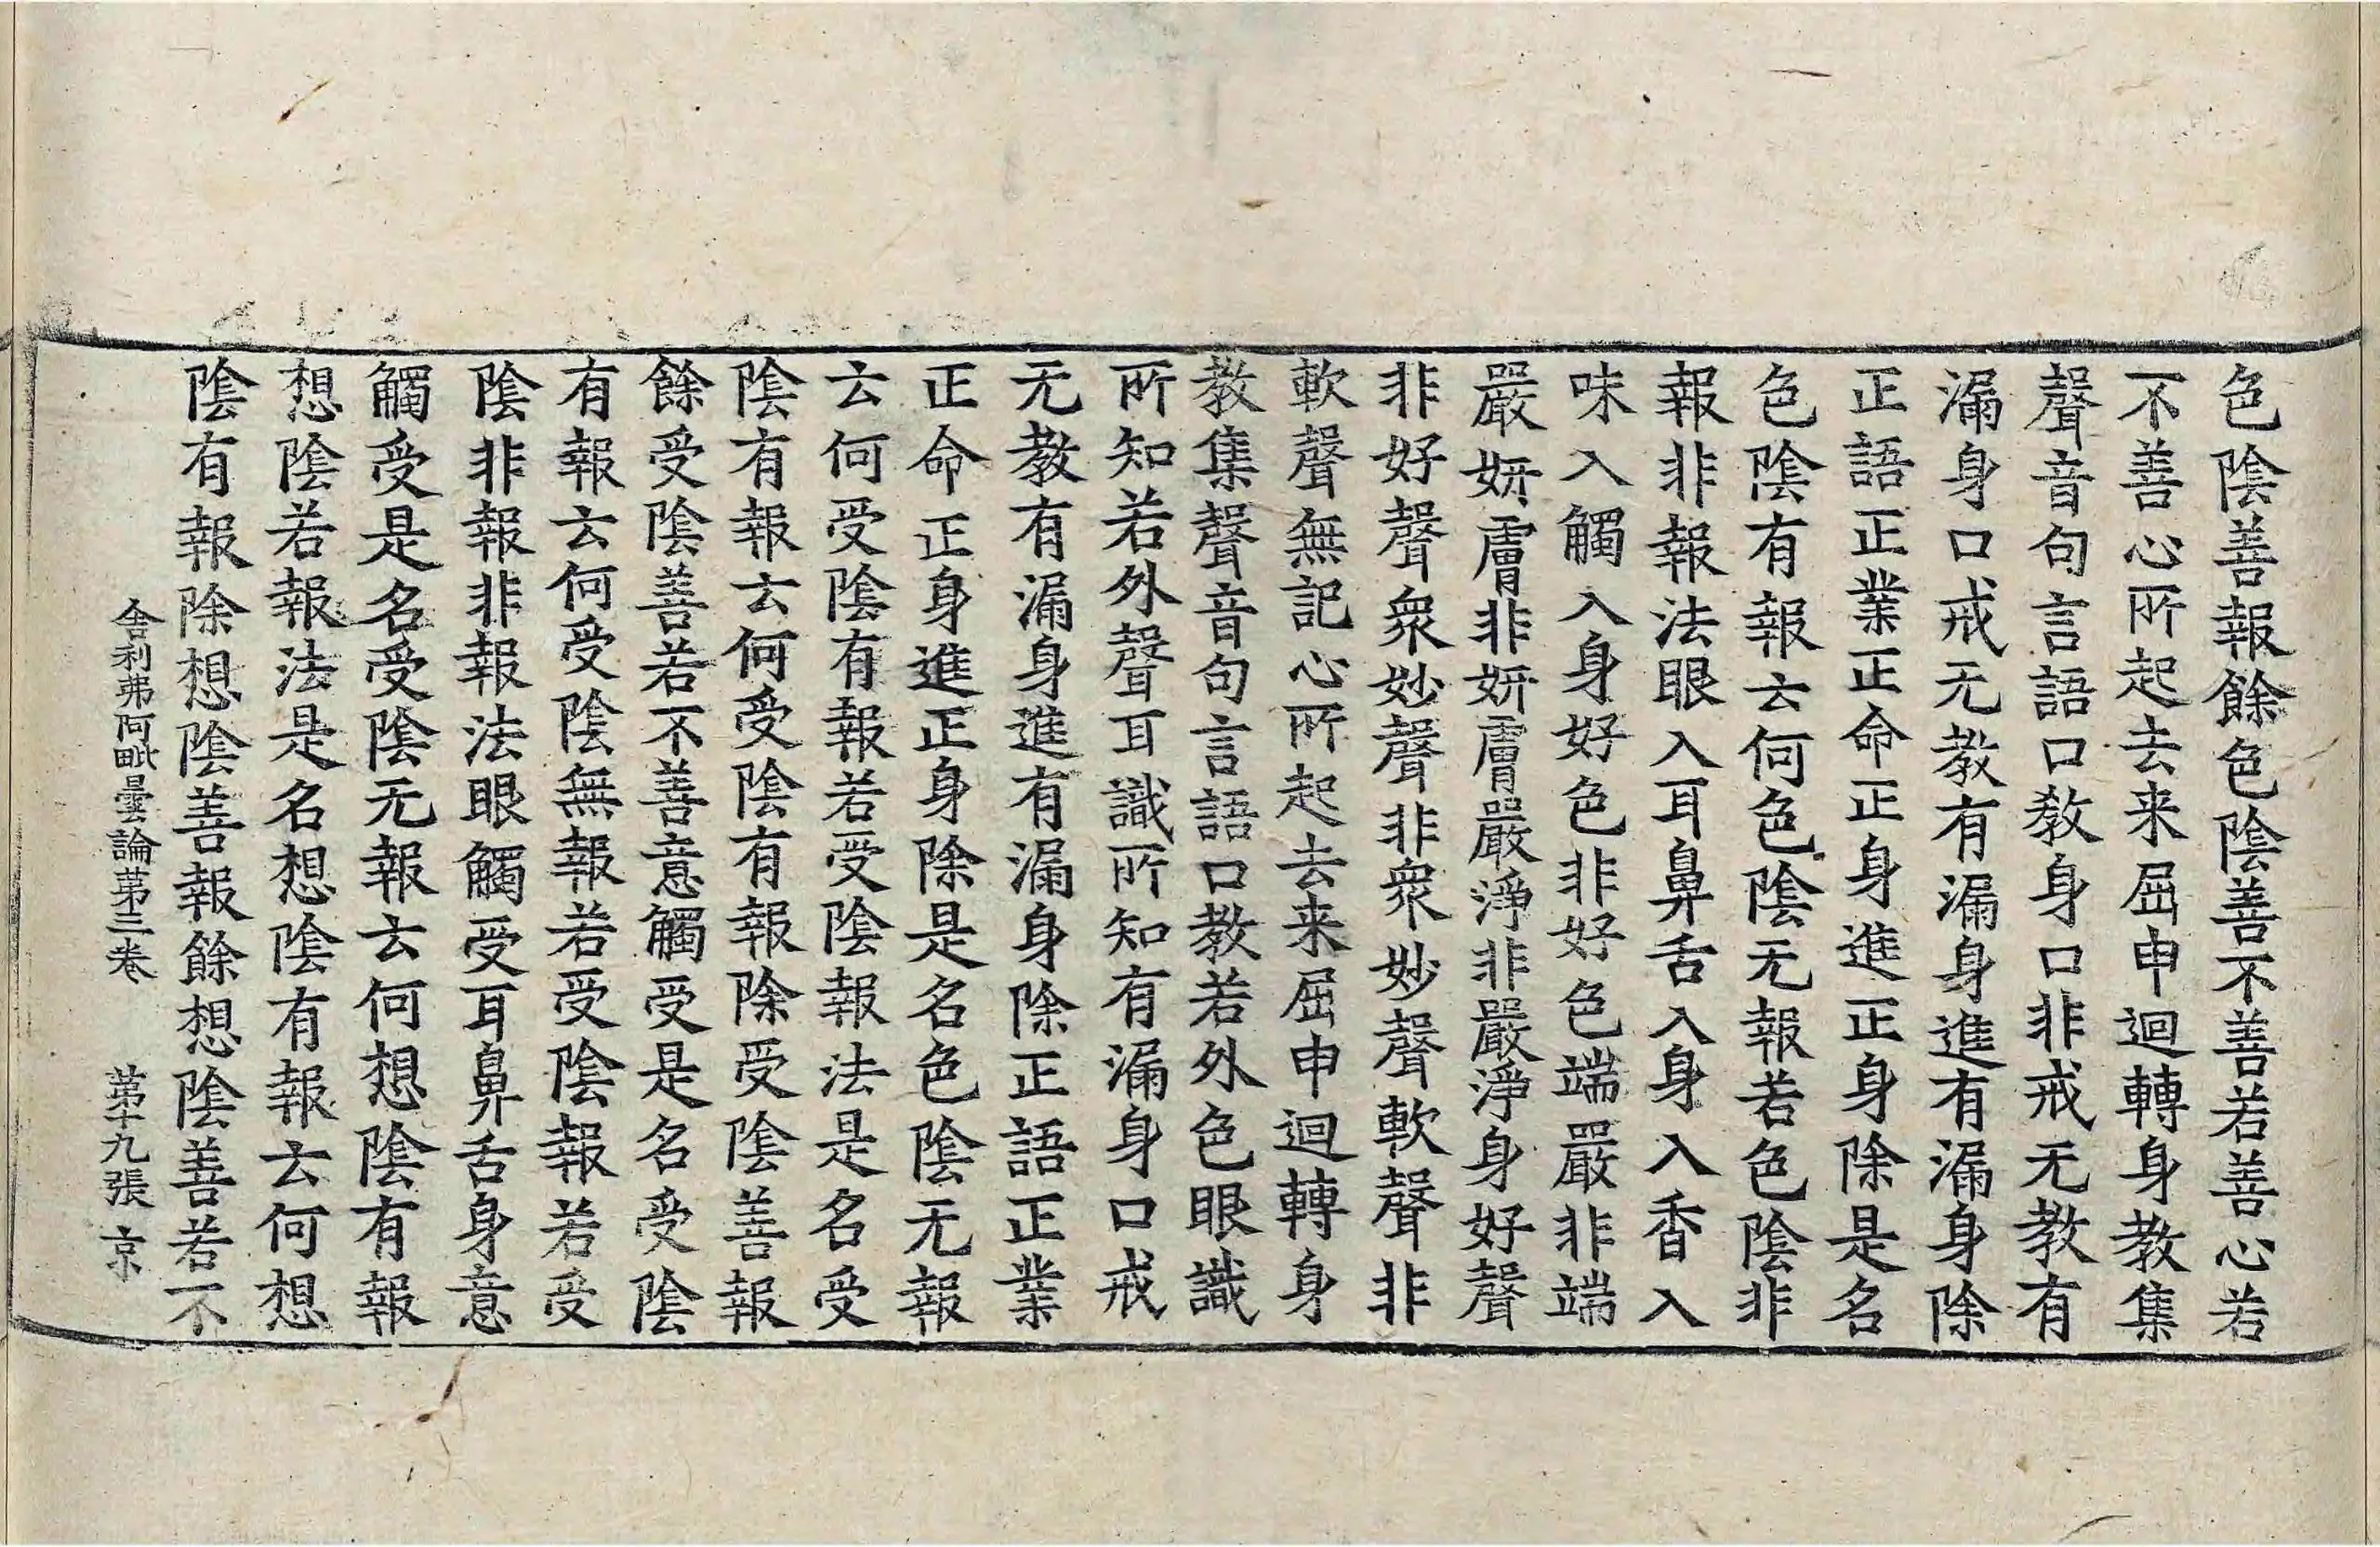 色陰善報餘色陰善不善若善心若
不善心所起去来屈申迴轉身教集
聲音句言語口教身口非戒无教有
漏身口戒无教有漏身進有漏身除
正語正業正命正身進正身除是名
色陰有報云何色陰无報若色陰非
報非報法眼入耳鼻舌入身入香入
味入觸入身好色非好色端嚴非端
嚴妍膚非妍膚嚴淨非嚴淨身好聲
非好聲衆妙聲非衆妙聲軟聲非
軟聲無記心所起去来屈申迴轉身
教集聲音句言語口教若外色眼識
所知若外聲耳識所知有漏身口戒
无教有漏身進有漏身除正語正業
正命正身進正身除是名色陰无報
云何受陰有報若受陰報法是名受
陰有報云何受陰有報除受陰善報
餘受陰善若不善意觸受是名受陰
有報云何受陰無報若受陰報若受
陰非報非報法眼觸受耳鼻舌身意
觸受是名受陰无報云何想陰有報
想陰若報法是名想陰有報云何想
陰有報除想陰善報餘想陰善若不
舍利弗阿毗曇論第三卷 第十九張 京